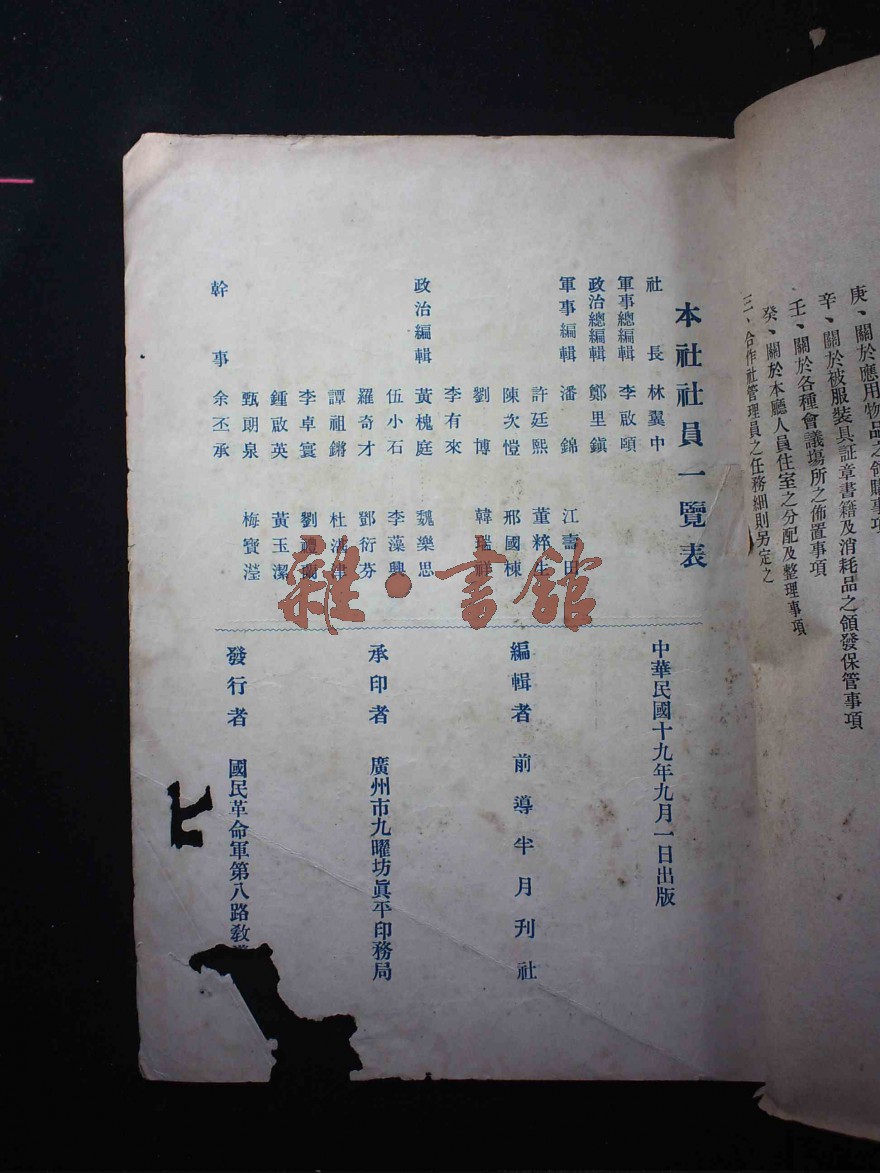 庚、關於應用物品之領購事項
辛、關於被服裝具証章書籍及消耗品之領發保管事項
壬、關於各種會議塲所之佈置事項
癸、關於本廳人員住室之分配及整理事項
三、合作社管理員之任務細則另定之
本社社員一覽表
社長 林翼中
軍事總編輯 李啟頤
政治總編輯 鄭里鎭
軍事編輯 潘錦 江壽田
許廷熙 董粹生
陳次愷 邢國棟
劉博 韓瑞祥
李有來
政治編輯 黃槐庭 魏樂思
伍小石 李藻興
羅奇才 鄧衍芬
譚祖鏘 杜 津
李卓寰 劉禮
鍾啟英 黃玉潔
甄朗泉 梅寶瀅
幹事 余丕承
中華民國十九年九月一日出版
編輯者 前導半月刊社
承印者 廣州市九曜坊眞平印務局
發行者 國民革命軍第八路敎
雜·書館